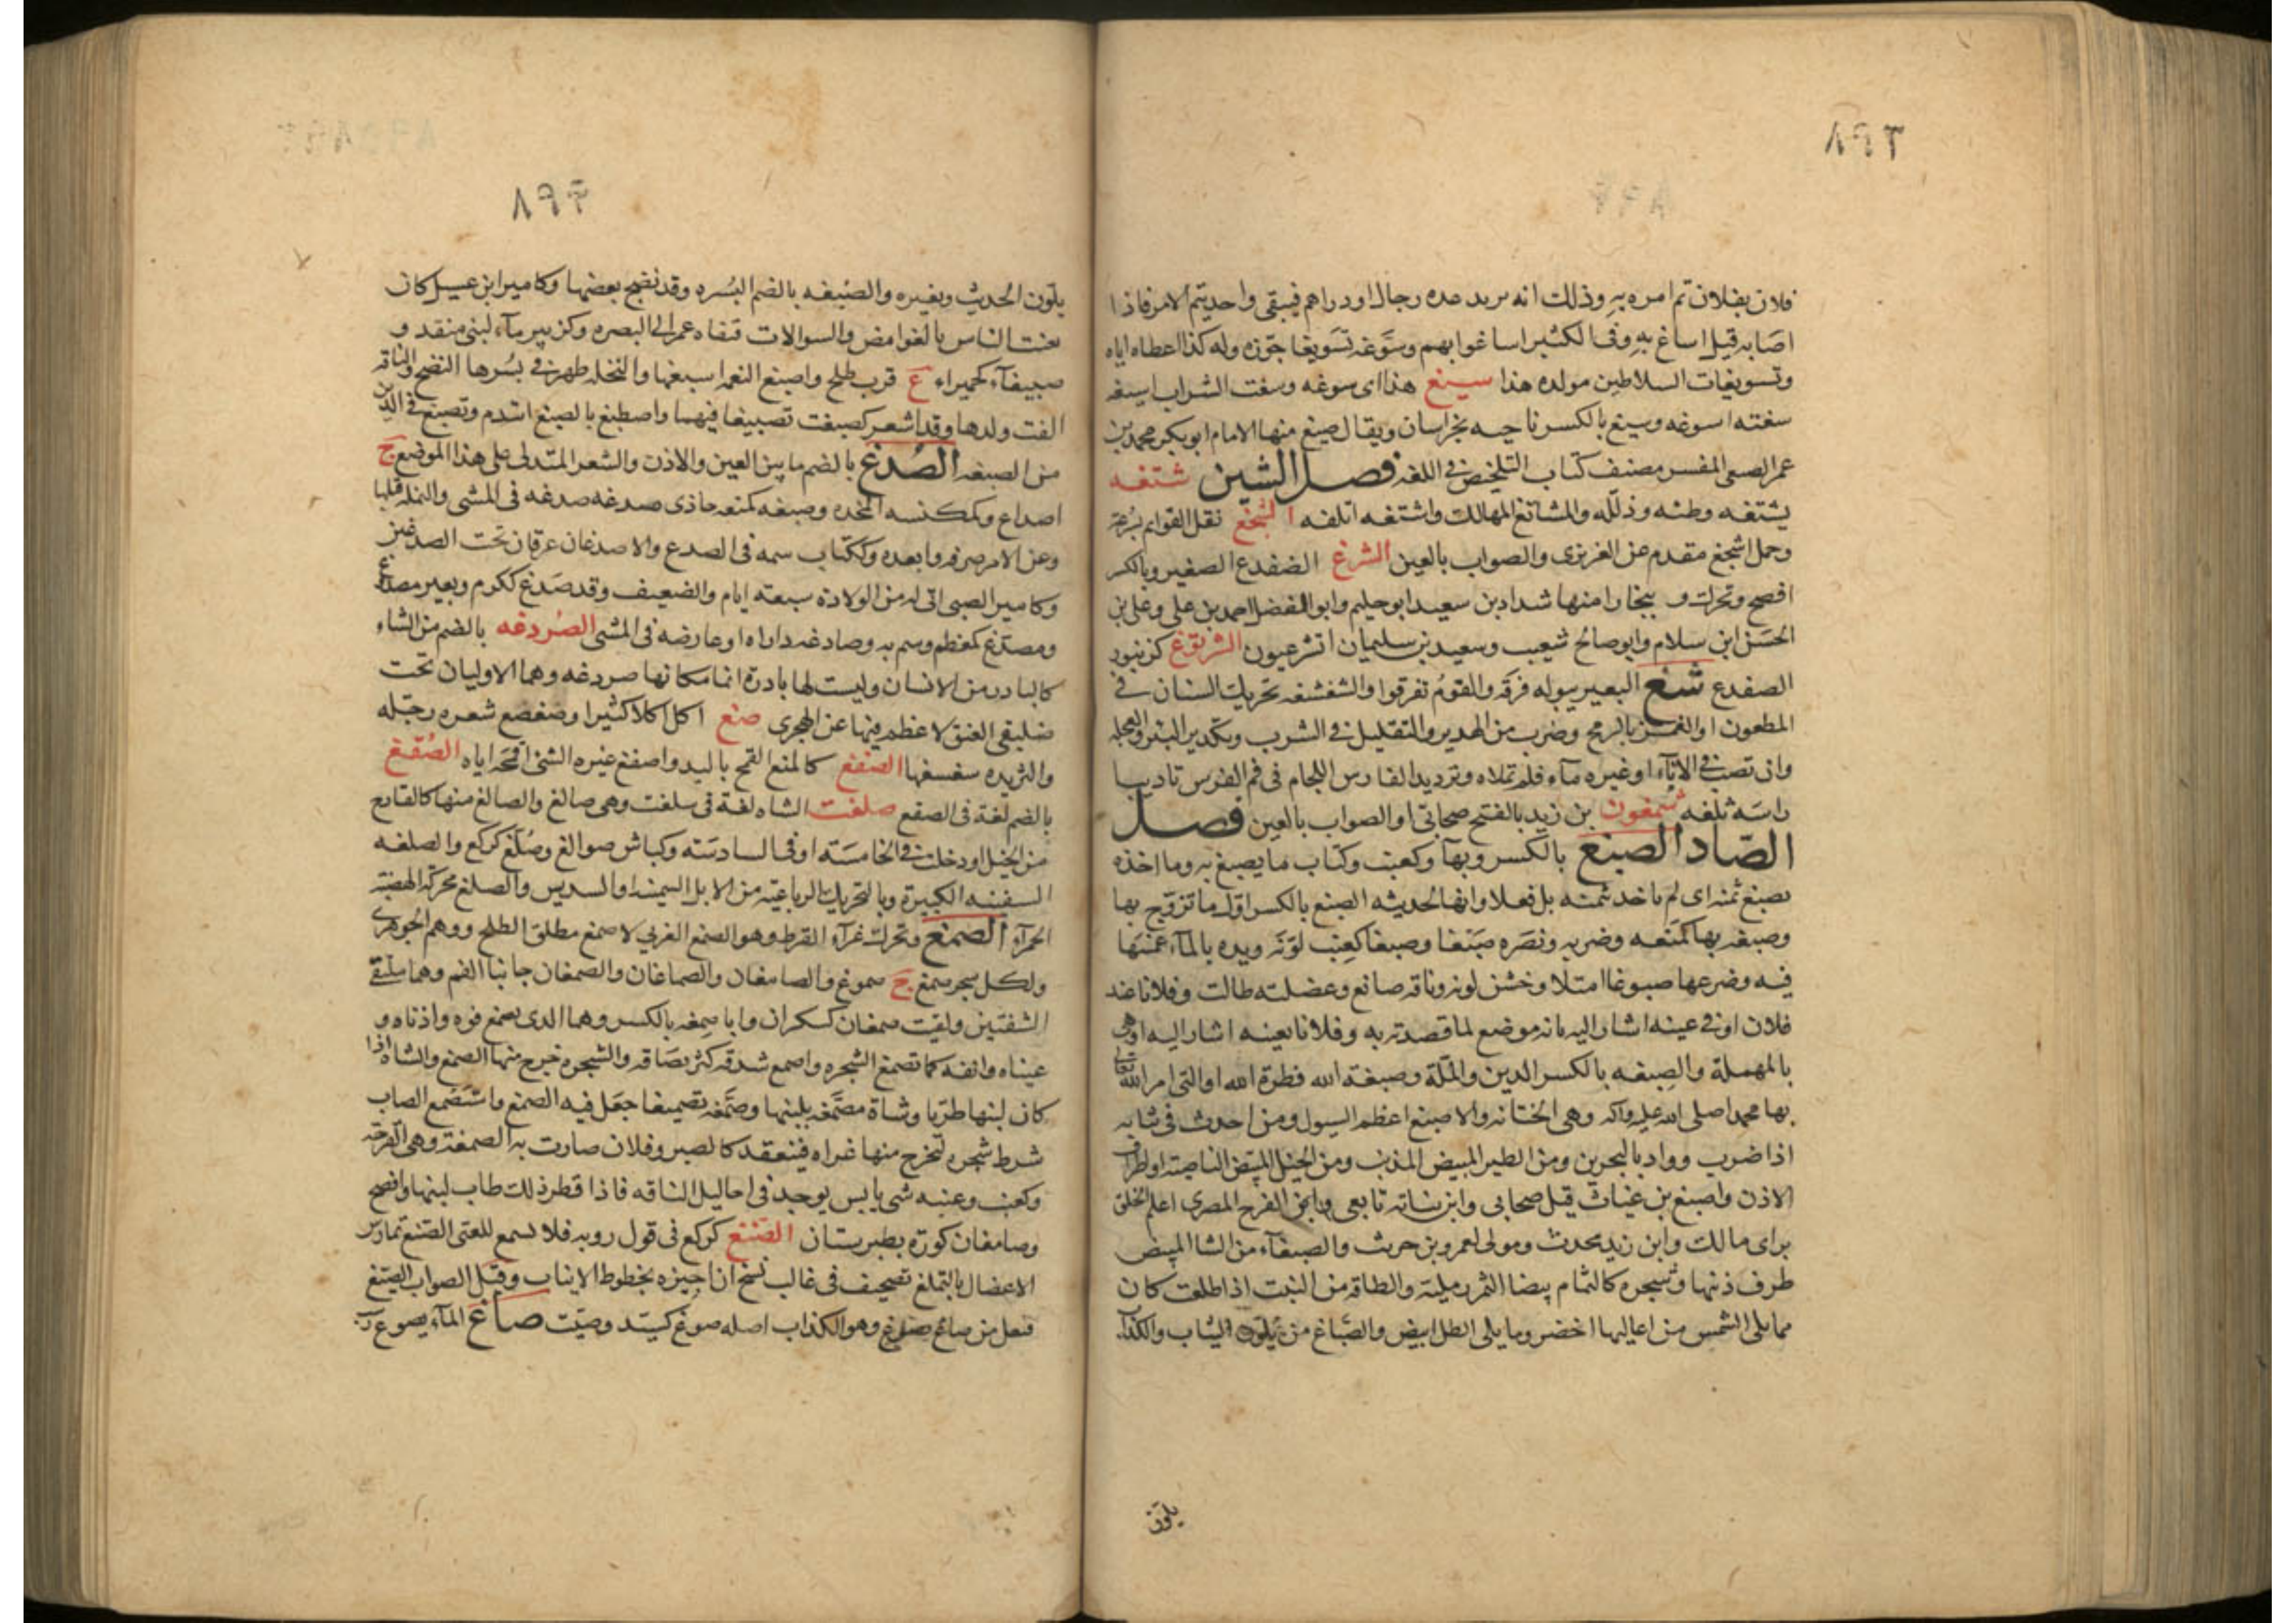 ٨٩٣
فلان بفلان تم امره به وذلك انه يريد عده رجال او دراهم فيبقى واحد يتم الامر فاذا
اصابه قيل اساغ به وفى الكثير اساغوا بهم وسوغه تسويغا جوزه وله كذا اعطاه اياه
وتسويغات السلاطين مولده هذا سيغ هذا اى سوغه وسغت الشراب اسيغه
سغته اسوغه وسيغ بالكسر ناحيه بخراسان ويقال صيغ منها الامام ابو بكر محمد بن
عمر الصيغى المفسر مصنف كتاب التلخيص فى اللغه فصل الشين شتغه
يشتغه وطئه وذلله والمشاتغ المهالك واشتغه اتلفه الشجغ نقل القوايم بسرعة
وجمل اشجغ مقدم عن العزيزى والصواب بالعين الشرغ الضفدع الصغير وبالكسر
افصح وتحرك و ببخارا منها شداد بن سعيد ابو حليم وابو الفضل احمد بن على وعلى بن
الحسن ابن سلام وابو صالح شعيب وسعيد بن سليمان الشرغيون الشرنوغ كزنبور
الضفدع شغ البعير ببوله فرقه والقوم تفرقوا والشغشغه تحريك السنان فى
المطعون او الغمز بالرمح وضرب من الهدير والتقليل فى الشرب وتكدير البئر والعجله
وان تصب فى الاناء او غيره ماء فلم تملاه وترديد الفارس اللجام فى فم الفرس تاديبا
راسه ثلغه شمغون بن زيد بالفتح صحابى او الصواب بالعين فصل
الصاد الصبغ بالكسر وبهاء وكعنب وكتاب ما يصبغ به وما اخذه
بصبغ ثمنه اى لم ياخد ثمنه بل فعلا وانها لحديثه الصبغ بالكسر اول ما تزوج بها
وصبغه بها كمنعه وضربه ونصره صبغا وصبغا كعنب لونه ويده بالماء غمسها
فيه وضرعها صبوغا امتلا وحسن لونه وناقه صابغ وعضلته طالت وفلانا عند
فلان او فى عينه اشار اليه بانه موضع لما قصدته به وفلانا بعينه اشار اليه او هى
بالمهملة والصبغه بالكسر الدين والملة وصبغة الله فطرة الله او التى امر الله تعالى
بها محمدا صلى الله عليه وآله وهى الختانه والاصبغ اعظم السيول ومن احدث فى ثيابه
اذا ضرب وواد بالبحرين ومن الطير المبيض الذنب ومن الخيل المبيض الناصية او اطراف
الاذن واصبغ بن غياث قيل صحابى وابن نباته تابعى وابن الفرج المصرى اعلم الخلق
براى مالك وابن زيد محدث ومولى لعمرو بن حريث والصبغاء من الشا المبيض
طرف ذنبها وشجره كالثمام بيضا الثمر رملية والطاقه من النبت اذا طلعت كان
مما يلى الشمس من اعاليها اخضر وما يلى الظل ابيض والصباغ من يلون الثياب والكذاب
يلون
٨٩٤
يلون الحديث ويغيره والصبغه بالضم البسره وقد نضج بعضها وكامير ابن عسيل كان
يعنت الناس بالغوامض والسوالات فنفاه عمر الى البصره وكزبير ماء لبنى منقذ و
صبيغآء كحميراء ع قرب طلح واصبغ النعمه اسبغها والنخله ظهر فى بسرها النضج والناقه
القت ولدها وقد اشعر كصبغت تصبيغا فيهما واصطبغ بالصبغ ائتدم وتصبغ فى الدين
من الصبغه الصدغ بالضم ما بين العين والاذن والشعر المتدلى على هذا الموضع ج
اصداغ وكمكنسه المخده وصدغه كمنعه حاذى صدغه صدغه فى المشى والنمله قتلها
وعن الامر صرفه وابعده وككتاب سمه فى الصدغ والاصدغان عرقان تحت الصدغين
وكامير الصبى اتى له من الولادة سبعة ايام والضعيف وقد صدغ ككرم وبعير مصدوغ
ومصدغ كمعظم وسم به وصادغه داراه او عارضه فى المشى الصردغه بالضم من الشاء
كالبادر من الانسان وليست لها بادرة انما مكانها صردغه وهما الاوليان تحت
صليفى العنق لا عظم فيها عن الهجرى صغ اكل اكلا كثيرا وصغصغ شعره رجله
والثريده سغسغها الصفغ كالمنع القمح باليد واصفغ غيره الشئ اقمحه اياه الصقغ
بالضم لغة فى الصقع صلغت الشاه لغة فى سلغت وهى صالغ والصالغ منها كالقارح
من الخيل او دخلت فى الخامسة او فى السادسة وكباش صوالغ وصلغ كركع والصلغه
السفينه الكبيرة وبالتحريك الرباعية من الابل السمينه او السديس والصلغ محركة الهضبة
الحمرآء الصمغ وتحرك غرآء القرظ وهو الصمغ العربى لا صمغ مطلق الطلح ووهم الجوهرى
ولكل شجر صمغ ج صموغ والصامغان والصماغان والصمغان جانبا الفم وهما ملتقى
الشفتين ولقيت صمغان كسكران وابا صمغه بالكسر وهما الذى يصمغ فوه واذناه و
عيناه وانفه كما تصمغ الشجره واصمغ شدقه كثر بصاقه والشجره خرج منها الصمغ والشاه اذا
كان لبنها طريا وشاة مصمغه بلبنها وصمغه تصميغا جعل فيه الصمغ واستصمغ الصاب
شرط شجره لتخرج منها غراه فينعقد كالصبر وفلان صارت به الصمغة وهى القرحة
وكعنب وعنبه شى يابس يوجد فى احاليل الناقه فاذا قطر ذلك طاب لبنها وافصح
وصامغان كورة بطبرستان الصنغ كركع فى قول روبه فلا تسمع للعتى الصنغ تمارس
الاعضال بالتملغ تصحيف فى غالب نسخ اراجيزه بخطوط الاثبات وقيل الصواب الصيغ
فيعل من صاغ يصوغ وهو الكذاب اصله صوغ كسيد وميت صاغ المآء يصوغ